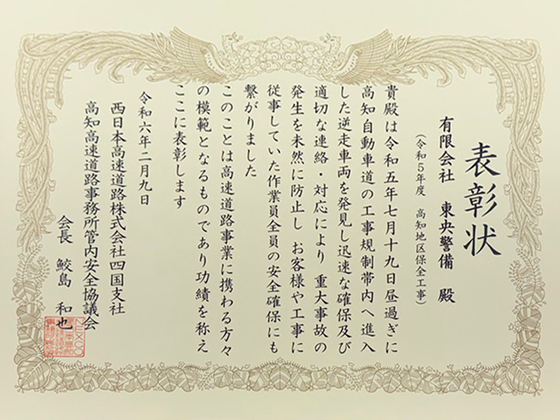 表彰状
有限会社 東央警備 殿
(令和5年度 高知地区保全工事)
貴殿は令和五年七月十九日昼過ぎに
高知自動車道の工事規制帯内へ進入
した逆走車両を発見し迅速な確保及び
適切な連絡・対応により 重大事故の
発生を未然に防止し お客様や工事に
従事していた作業員全員の安全確保にも
繋がりました
このことは高速道路事業に携わる方々
の模範となるものであり功績を称え
ここに表彰します
令和六年二月九日
西日本高速道路株式会社四国支社
高知高速道路事務所管内安全協議会
会長 鮫島 和也